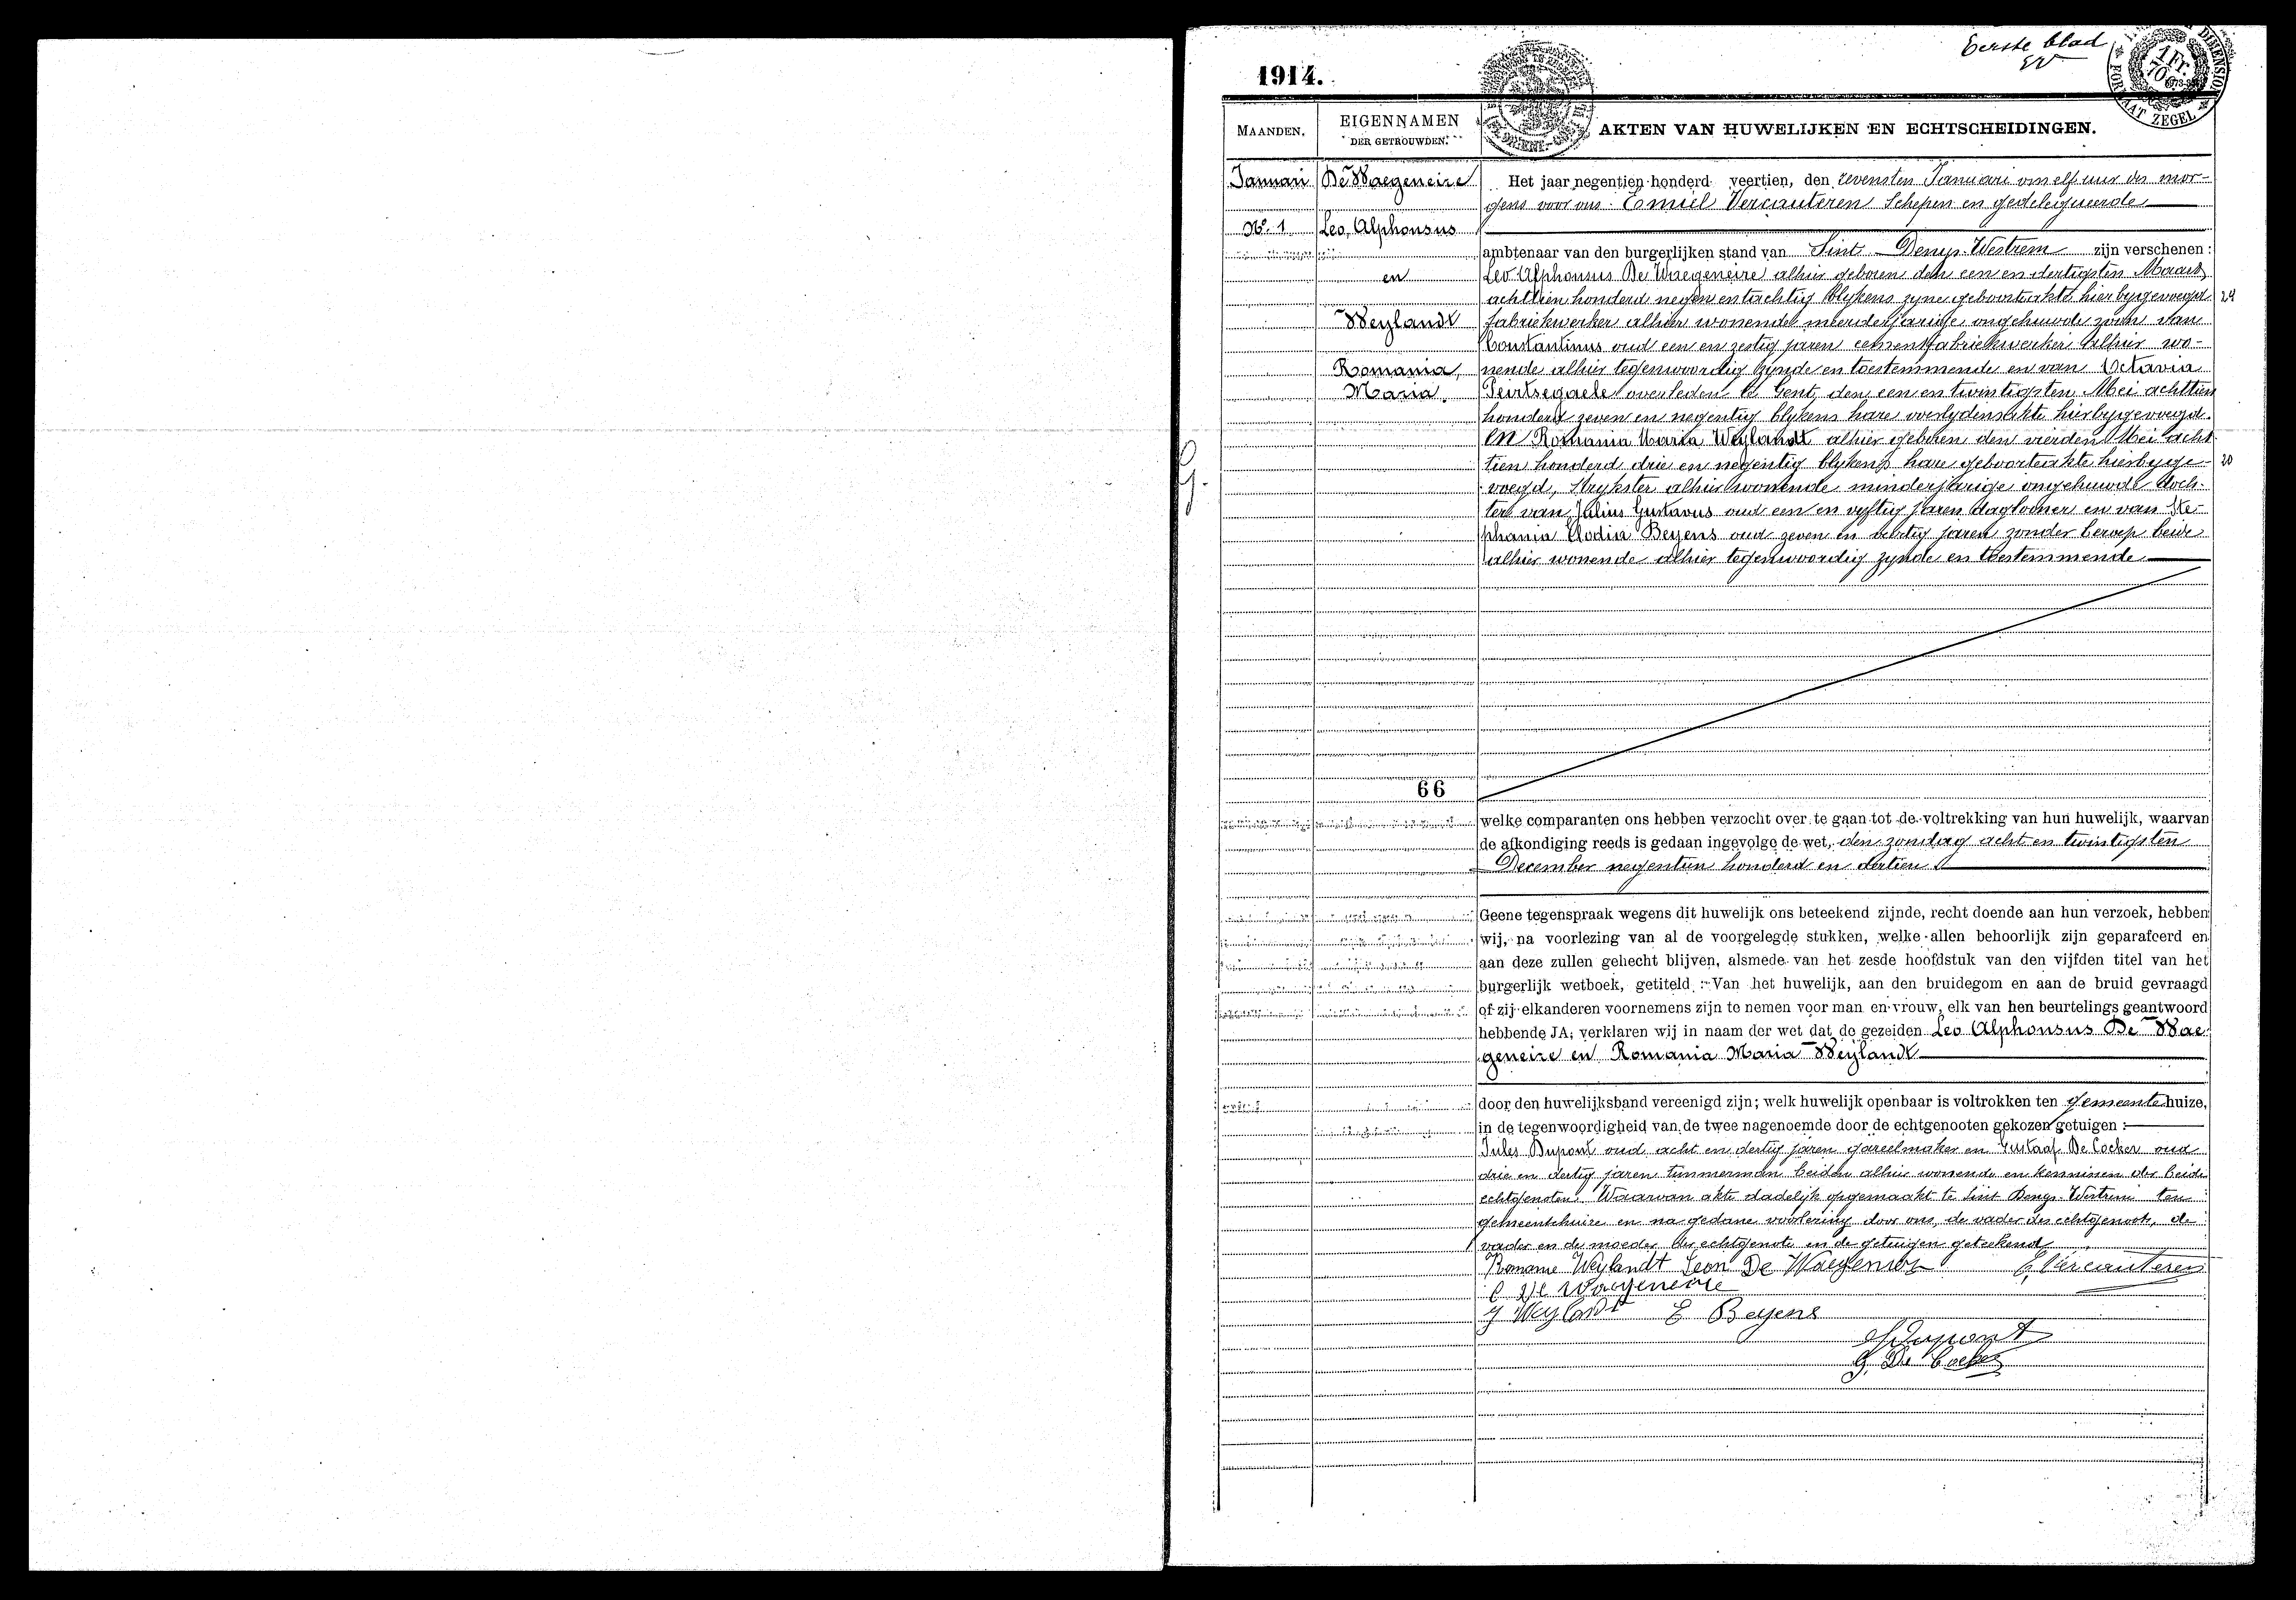 Eerste blad
EV
1914.
1 Fr. 70 C.
DIMENSION
FORMAAT ZEGEL
MAANDEN.
EIGENNAMEN
DER GETROUWDEN.
AKTEN VAN HUWELIJKEN EN ECHTSCHEIDINGEN.
Januari
No. 1
De Waegeneire
Leo, Alphonsus
en
Weylandt
Romania,
Maria.
66
G.
Het jaar negentien honderd veertien, den zevensten Januari om elf uur des mor-
gens voor ons Emiel Vercauteren Schepen en gedelegueerde
ambtenaar van den burgerlijken stand van Sint Denys-Westrem zijn verschenen :
Leo Alphonsus De Waegeneire alhier geboren den een en dertigsten Maart
achttien honderd negen en tachtig blykens zyne geboorteakte hierbygevoegd 24
fabriekwerker alhier wonende meerderjarige ongehuwde zoon van
Constantinus oud een en zestig jaren cementfabriekwerker alhier wo-
nende alhier tegenwoordig zynde en toestemmende en van Octavia
Peirtsegaele overleden te Gent, den een en twintigsten Mei achttien
honderd zeven en negentig blykens hare overlydensakte hierbygevoegd.
en Romania Maria Weylandt alhier geboren den vierden Mei acht-
tien honderd drie en negentig blykens hare geboorteakte hierbyge- 20
voegd, strykster alhier wonende minderjarige ongehuwde doch-
ter van Julius Gustavus oud een en vyftig jaren dagloner en van Ste-
phania Elodia Beyens oud zeven en veertig jaren zonder beroep beide
alhier wonende alhier tegenwoordig zynde en toestemmende
welke comparanten ons hebben verzocht over te gaan tot de voltrekking van hun huwelijk, waarvan
de afkondiging reeds is gedaan ingevolge de wet, den zondag acht en twintigsten
December negentien honderd en dertien
Geene tegenspraak wegens dit huwelijk ons beteekend zijnde, recht doende aan hun verzoek, hebben
wij, na voorlezing van al de voorgelegde stukken, welke allen behoorlijk zijn geparafeerd en
aan deze zullen gehecht blijven, alsmede van het zesde hoofdstuk van den vijfden titel van het
burgerlijk wetboek, getiteld : Van het huwelijk, aan den bruidegom en aan de bruid gevraagd
of zij elkanderen voornemens zijn te nemen voor man en vrouw, elk van hen beurtelings geantwoord
hebbende JA; verklaren wij in naam der wet dat de gezeiden Leo Alphonsus De Wae-
geneire en Romania Maria Weylandt
door den huwelijksband vereenigd zijn; welk huwelijk openbaar is voltrokken ten gemeentehuize,
in de tegenwoordigheid van de twee nagenoemde door de echtgenooten gekozen getuigen :
Jules Dupont oud acht en dertig jaren gareelmaker en Gustaaf De Cocker oud
drie en dertig jaren timmerman beiden alhier wonende en kennissen der beide
echtgenoten. Waarvan akte dadelijk opgemaakt te Sint Denys-Westrem ten
gemeentehuize en na gedane voorlezing door ons, de vader des echtgenoots, de
vader en de moeder der echtgenote en de getuigen geteekend
Romanie Weylandt Leon De Waegeneire E. Vercauteren
C De Waegeneire
J Weylandt E Beyens
J Dupont
G. De Cocker